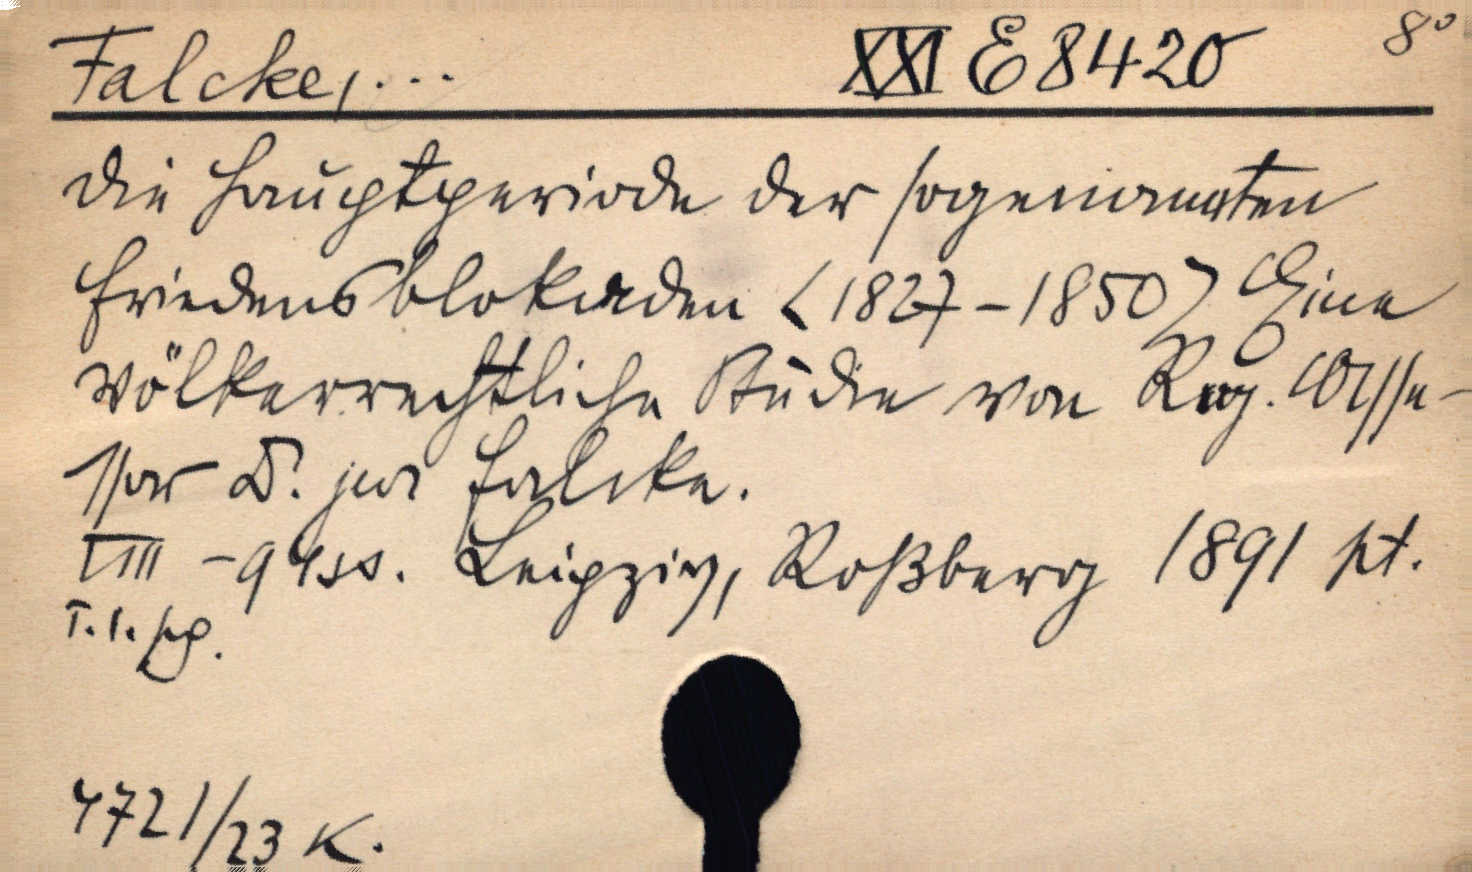 Falcke, ... XXI E 8420 8°
Die Hauptperiode der sogenannten
Friedensblokaden <1827-1850> Eine
völkerrechtliche Studie von Reg. Asse-
ssor D. jur Falcke.
VIII - 94 SS. Leipzig, Roßberg 1891
4721/23 K.